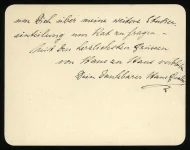 um Dich über meine weitere Studien-
einteilung um Rat zu fragen.
Mit den herzlichsten Grüssen
von Haus zu Haus verbleibe
Dein dankbarer Hans